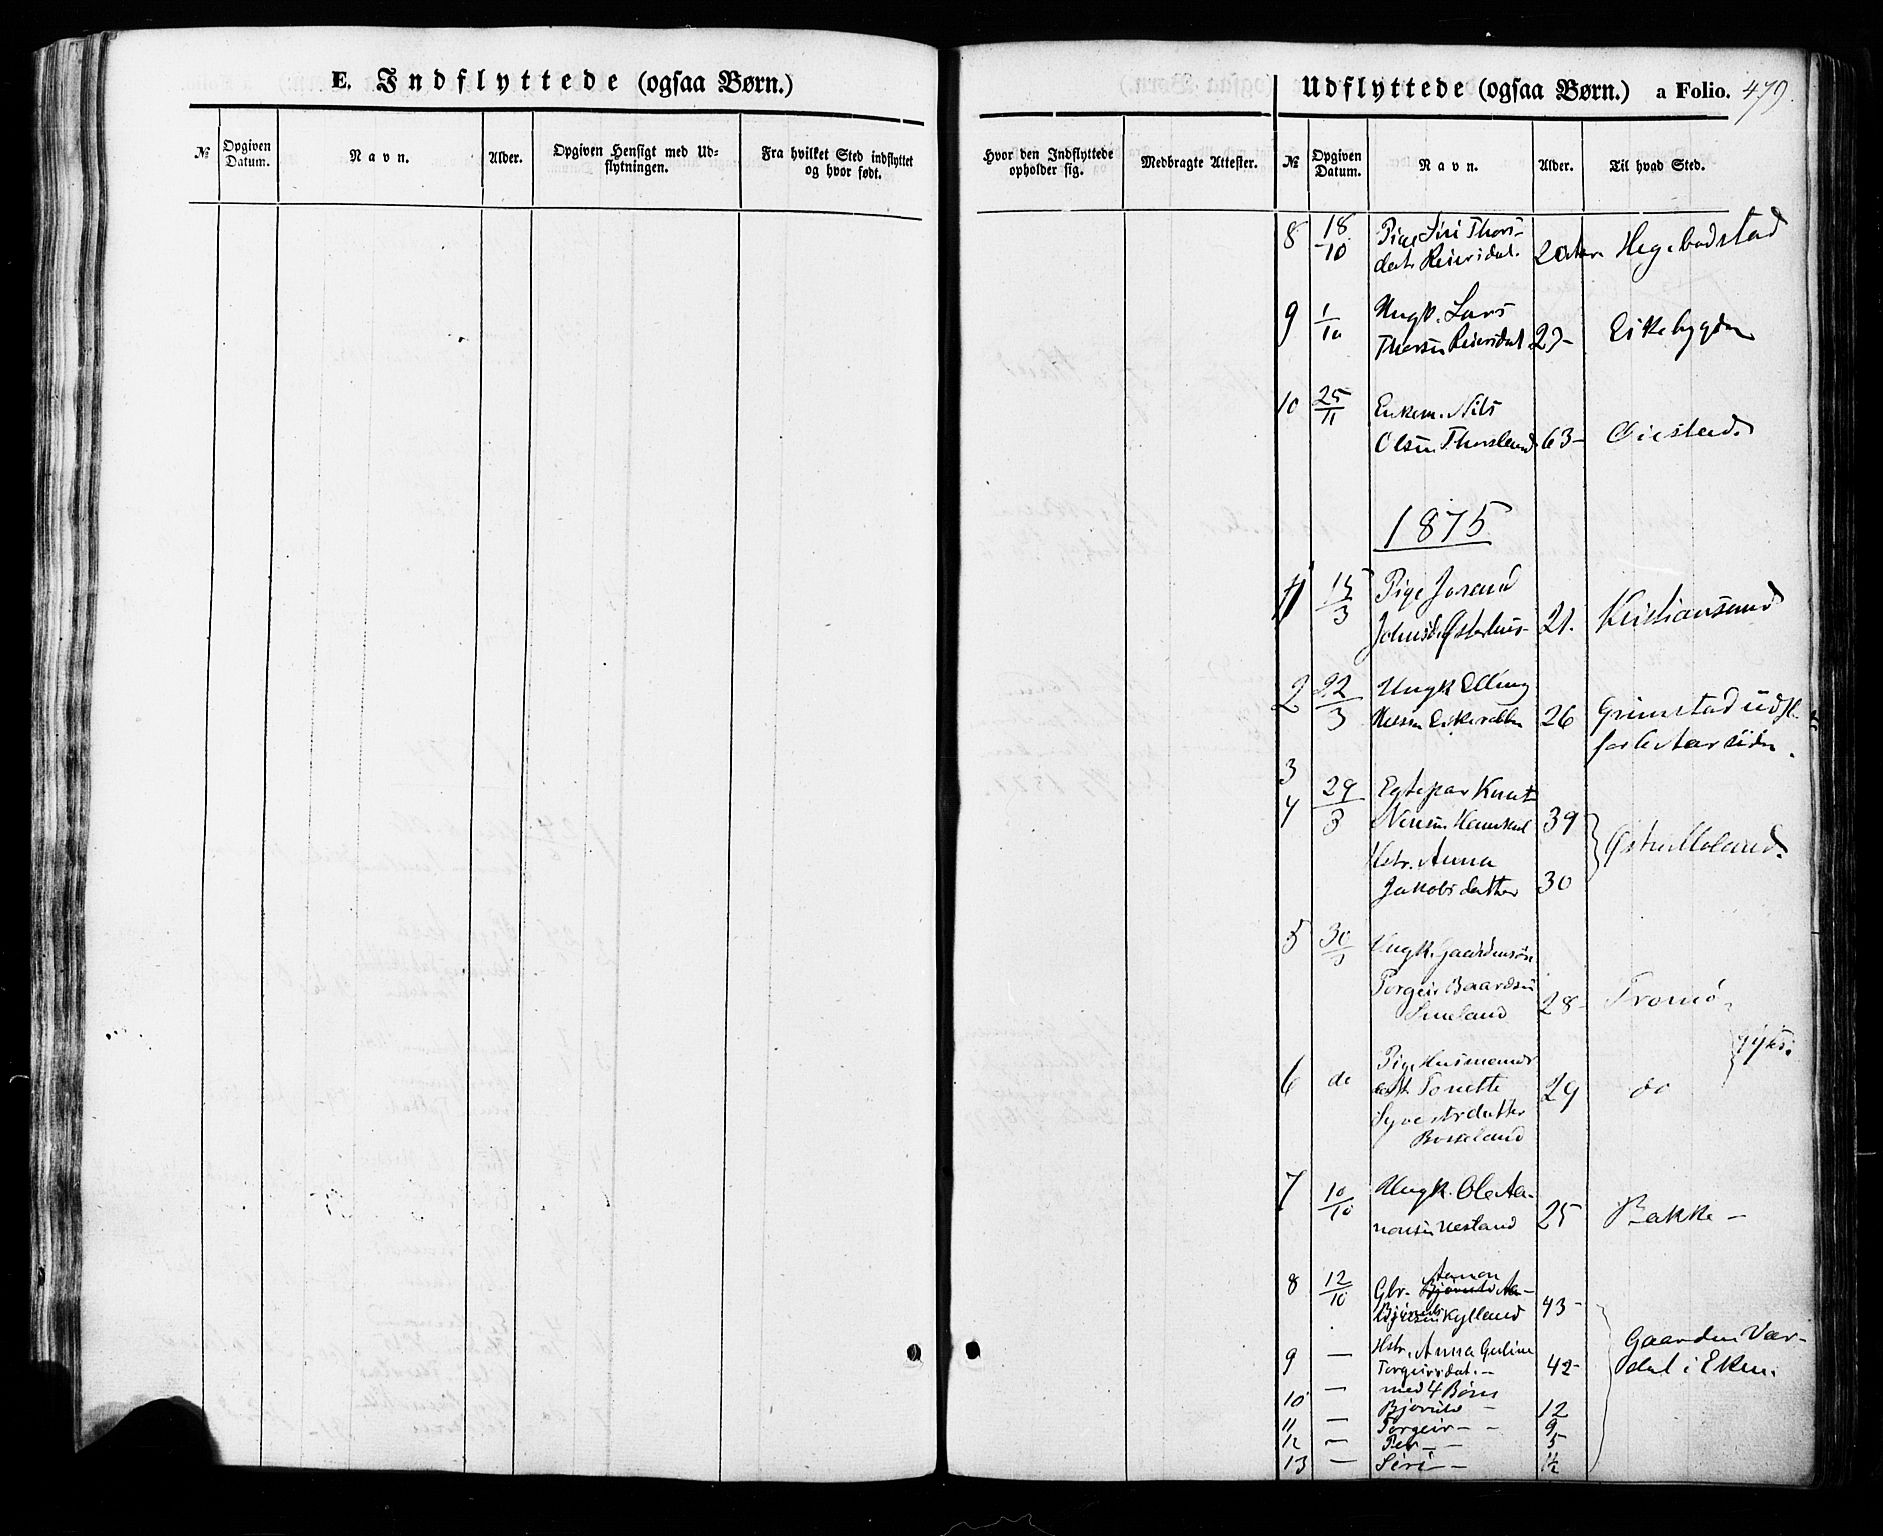 E. Indflyttede (ogsaa Børn.)
№
Opgiven Datum.
Navn.
Alder.
Opgiven Hensigt med Udflytningen.
Fra hvilket Sted indflyttet og hvor født.
Udflyttede (ogsaa Børn.) a Folio. 479.
Hvor den Indflyttede opholder sig.
Medbragte Attester.
№
Opgiven Datum.
Navn.
Alder.
Til hvad Sted.
8 18/10 Pige Siri Thors-
datr Reiersdal. 20 Hegebostad
9 1/10 Ungk. Lars
Thorsen Reiersdal 23- Eikebygden
10 25/11 Enkem. Nils
Olsen Thorsland 63- Øiestad.
1875
1 15/3 Pige Jorand
Johnsd. Østerhus- 21. Kristiansand
2 22/3 Ungk Elling
26 Grimstad udfl.
3
4 29/3 Egtepar Knut
39
Hstr. Anna
Jakobsdatter 30 Østre Moland.
5 30/3 Ungk. Gaardmansøn
Torgeir Baardsen
28- Tromø
6 do Pige Husmands
datr Tonette
Syvertsdatter 29 do
7 10/10 Ungk. Ole Aa-
nonsen Uesland 25 Bakke -
8 12/10 Gbr. Aanon
Kylland 43-
9 - Hstr. Anna Guline
Torgeirsdat. - 42- Gaarden Vær-
dal i Eken.
10 - med 4 Børn
Bjørulv - 12
11 - Torgeir - - 9
12 - Per - - 5
13 - Siri - - 1½